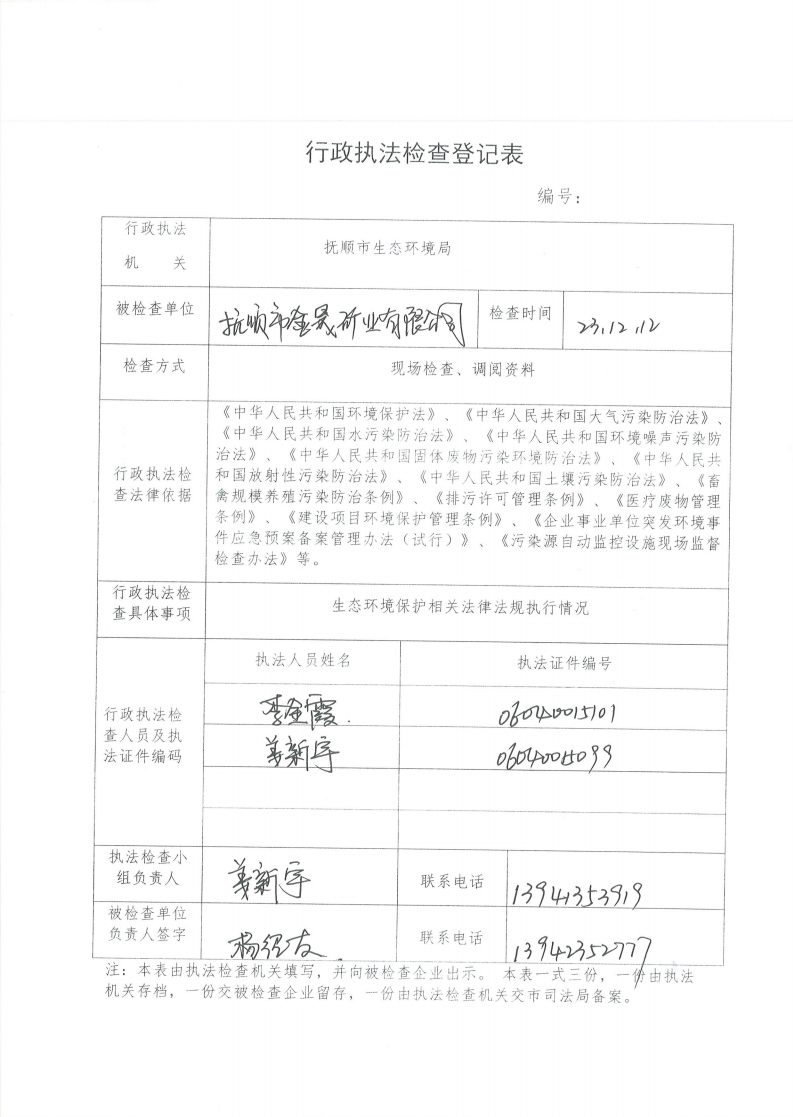 行政执法检查登记表
编号：
行政执法
机 关
抚顺市生态环境局
被检查单位
抚顺市金晟矿业有限公司
检查时间
23.12.12
检查方式
现场检查、调阅资料
行政执法检
查法律依据
《中华人民共和国环境保护法》、《中华人民共和国大气污染防治法》、
《中华人民共和国水污染防治法》、《中华人民共和国环境噪声污染防
治法》、《中华人民共和国固体废物污染环境防治法》、《中华人民共
和国放射性污染防治法》、《中华人民共和国土壤污染防治法》、《畜
禽规模养殖污染防治条例》、《排污许可管理条例》、《医疗废物管理
条例》、《建设项目环境保护管理条例》、《企业事业单位突发环境事
件应急预案备案管理办法（试行）》、《污染源自动监控设施现场监督
检查办法》等。
行政执法检
查具体事项
生态环境保护相关法律法规执行情况
行政执法检
查人员及执
法证件编码
执法人员姓名
执法证件编号
李金霞.
06040015101
姜新宇
06040015099
执法检查小
组负责人
姜新宇
联系电话
13941353919
被检查单位
负责人签字
联系电话
13942352777
注：本表由执法检查机关填写，并向被检查企业出示。 本表一式三份，一份由执法
机关存档，一份交被检查企业留存，一份由执法检查机关交市司法局备案。